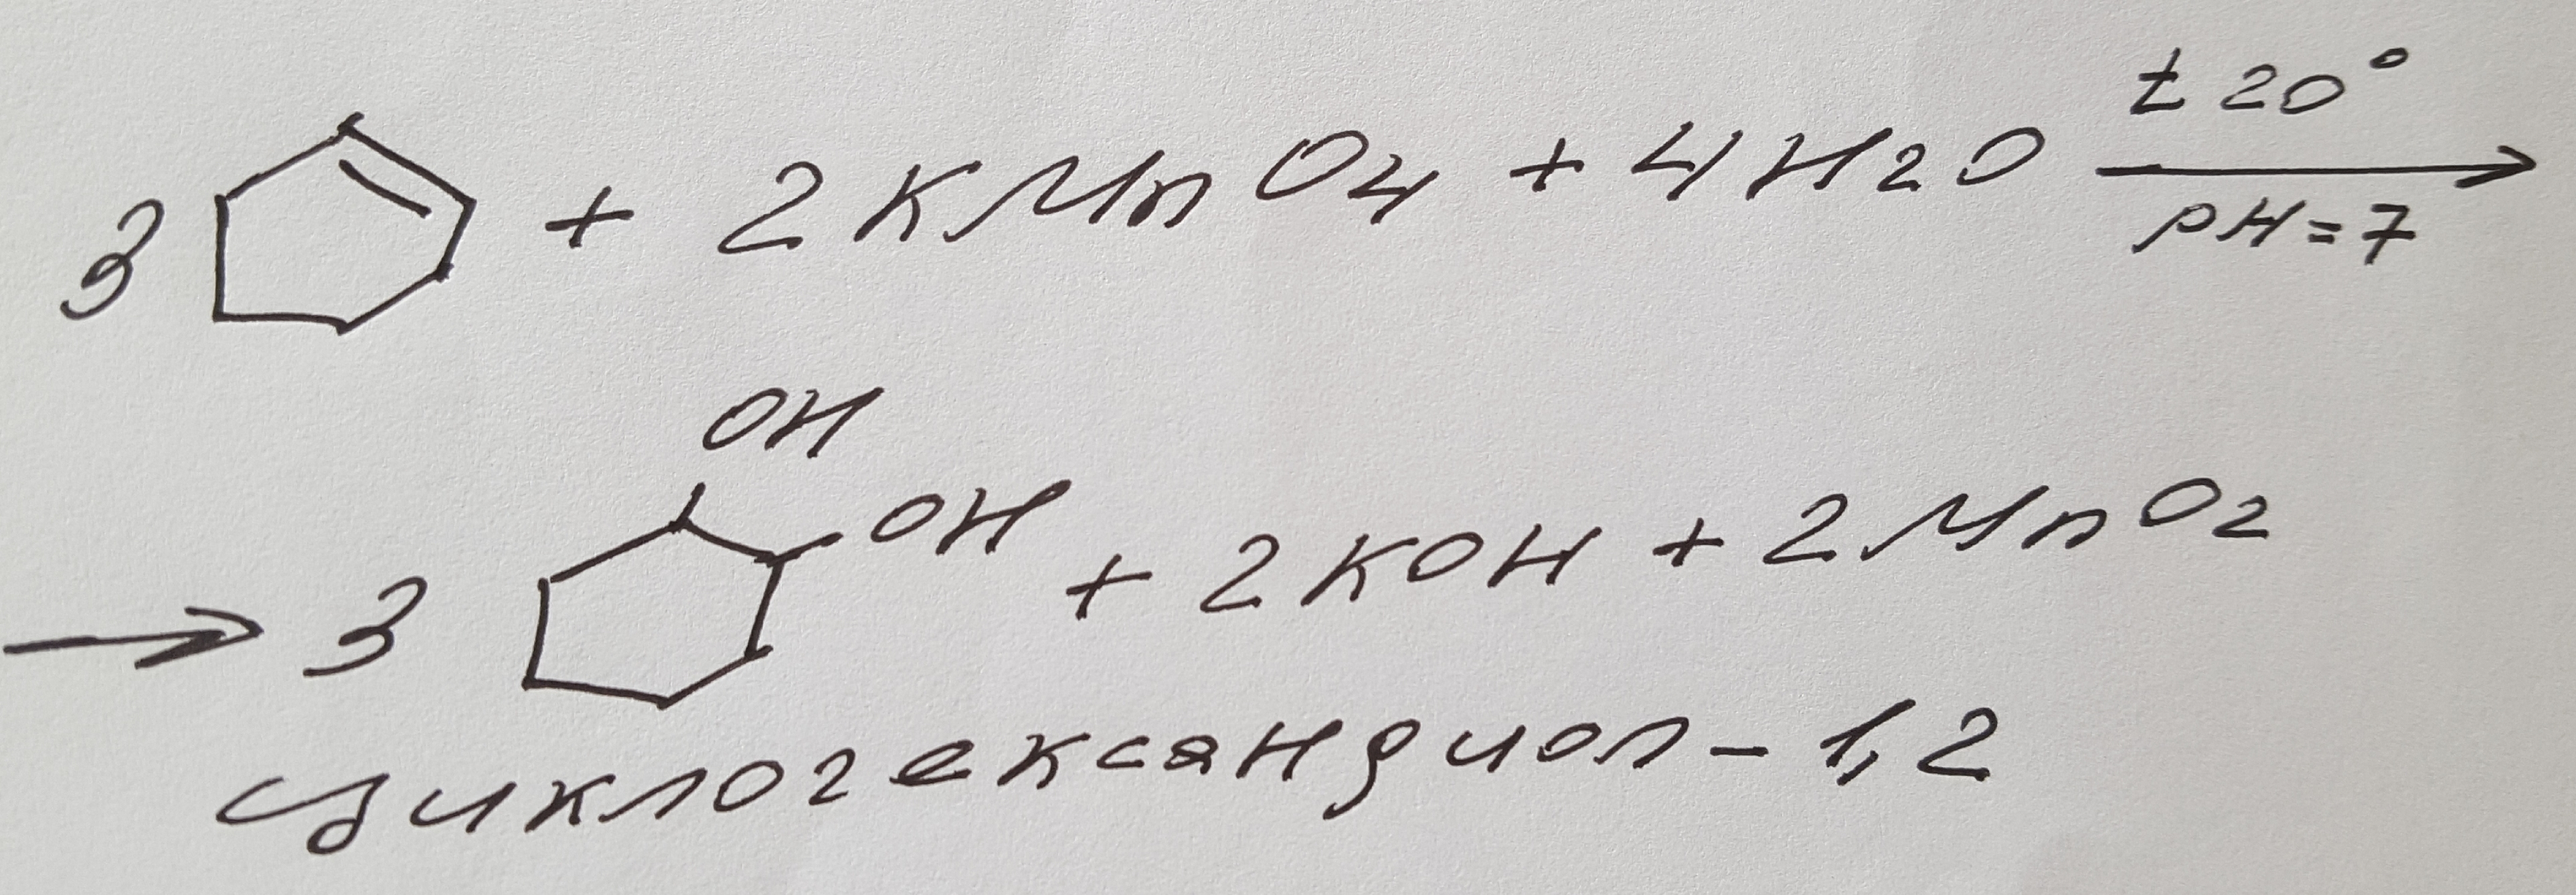 3 + 2KMnO4 + 4H2O t 20° pH=7
OH
→ 3 OH + 2KOH + 2MnO2
циклогександиол-1,2